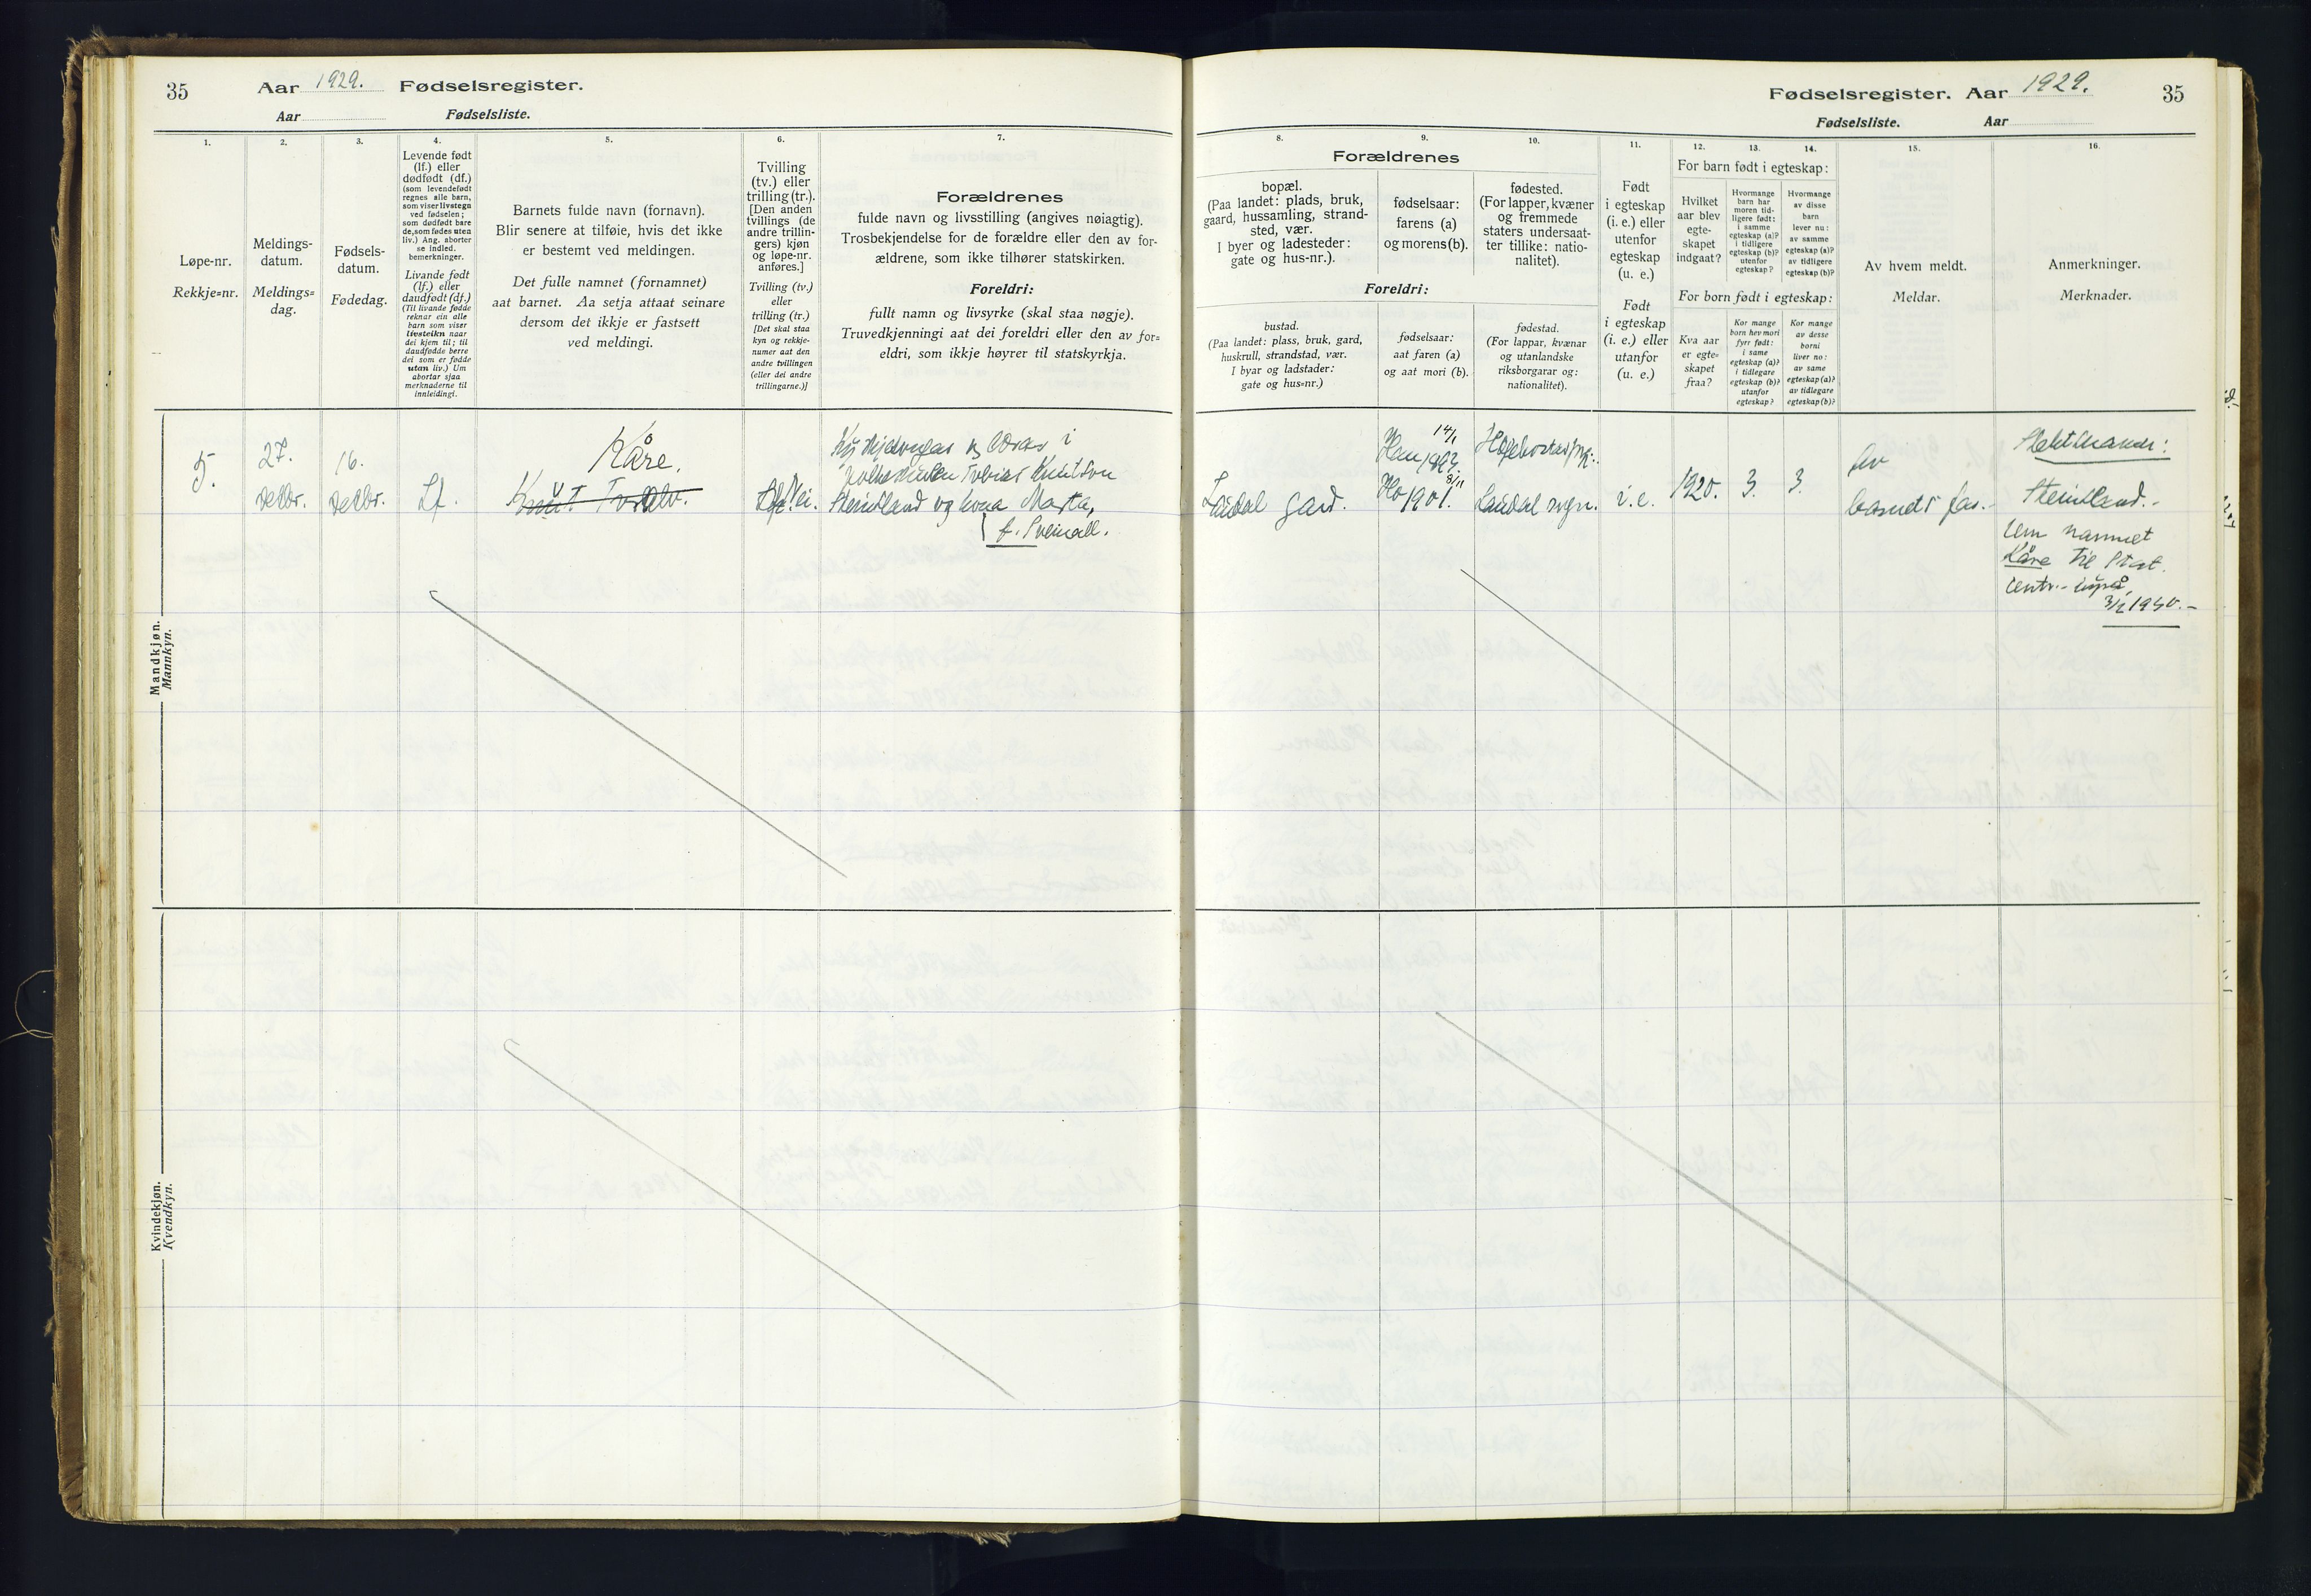 35
Aar 1929. Fødselsregister.
Aar Fødselsliste.
1.
2.
3.
4.
5.
6.
7.
Løpe-nr.
Rekkje=nr.
Meldings-
datum.
Meldings=
dag.
Fødsels-
datum.
Fødedag.
Levende født
(lf.) eller
dødfødt (df.)
(som levendefødt
regnes alle barn,
som viser livstegn
ved fødselen;
som dødfødt bare
de, som fødes uten
liv.) Ang. aborter
se indled.
bemerkninger.
Livande født
(lf.) eller
daudfødt (df.)
(Til livande fødde
reknar ein alle
barn som viser
livsteikn naar
dei kjem til; til
daudfødde berre
dei som er fødde
utan liv.) Um
abortar sjaa
merknaderne til
innleidingi.
Barnets fulde navn (fornavn).
Blir senere at tilføie, hvis det ikke
er bestemt ved meldingen.
Det fulle namnet (fornamnet)
aat barnet. Aa setja attaat seinare
dersom det ikkje er fastsett
ved meldingi.
Tvilling
(tv.) eller
trilling (tr.).
[Den anden
tvillings (de
andre trillin-
gers) kjøn
og løpe-nr.
anføres.]
Tvilling (tv.)
eller
trilling (tr.)
[Det skal staa
kyn og rekkje-
numer aat den
andre tvillingen
(eller dei andre
trillingarne.)]
Forældrenes
fulde navn og livsstilling (angives nøiagtig).
Trosbekjendelse for de forældre eller den av for-
ældrene, som ikke tilhører statskirken.
Foreldri:
fullt namn og livsyrke (skal staa nøgje).
Truvedkjenningi aat dei foreldri eller den av for=
eldri, som ikkje høyrer til statskyrkja.
Mandkjøn.
Mannkyn.
5.
27.
Decbr.
16.
Decbr.
Lf.
Kåre.
Knut
ei.
og
i
Tobias Knutson
Steinsland og kona Marta,
f. Sveinall.
Kvindekjøn.
Kvendkyn.
Fødselsregister. Aar 1929. 35
Fødselsliste. Aar
8.
9.
10.
11.
12.
13.
14.
15.
16.
Forældrenes
bopæl.
(Paa landet: plads, bruk,
gaard, hussamling, strand-
sted, vær.
I byer og ladesteder:
gate og hus-nr.).
fødselsaar:
farens (a)
og morens (b).
fødested.
(For lapper, kvæner
og fremmede
staters undersaat-
ter tillike: natio-
nalitet).
Foreldri:
bustad.
(Paa landet: plass, bruk, gard,
huskrull, strandstad, vær.
I byar og ladstader:
gate og hus=nr.)
fødselsaar:
aat faren (a)
og aat mori (b).
fødestad.
(For lappar, kvænar
og utanlandske
riksborgarar og:
nationalitet).
Født
i egteskap
(i. e.) eller
utenfor
egteskap
(u. e.)
Født
i egteskap
(i. e.) eller
utanfor
(u. e.)
For barn født i egteskap:
Hvilket
aar blev
egte-
skapet
indgaat?
Hvormange
barn har
moren tid-
ligere født:
i samme
egteskap (a)?
i tidligere
egteskap (b)?
utenfor
egteskap?
Hvormange
av disse
barn
lever nu:
av samme
egteskap (a)?
av tidligere
egteskap (b)?
For born født i egteskap:
Kva aar
er egte=
skapet
fraa?
Kor mange
born hev mori
fyrr født:
i same
egteskap (a)?
i tidlegare
egteskap (b)?
utanfor
egteskap?
Kor mange
av desse
borni
liver no:
av same
egteskap (a)?
av tidlegare
egteskap (b)?
Av hvem meldt.
Meldar.
Anmerkninger.
Merknader.
Laudal gard.
14/1
Han 1893.
8/11
Ho 1901.
Laudal sogn.
i.e.
1920.
3.
3.
Av
barnets far.
Steinsland.
Um namnet
Kåre til Stat.
Centr.
3/2 1930.